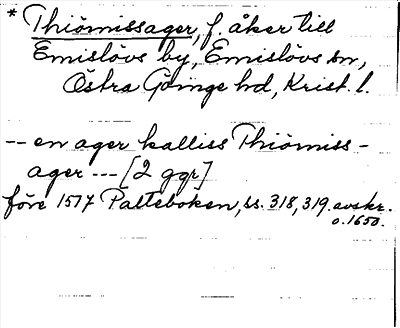 * Thiömissager, f. åker till
Emislövs by, Emislövs sn,
Östra Göinge hd, Krist. l.
-- en ager kalliss Thiömiss-
ager --- [2 ggr]
före 1517 Palteboken, ss. 318, 319. avskr.
o. 1650.